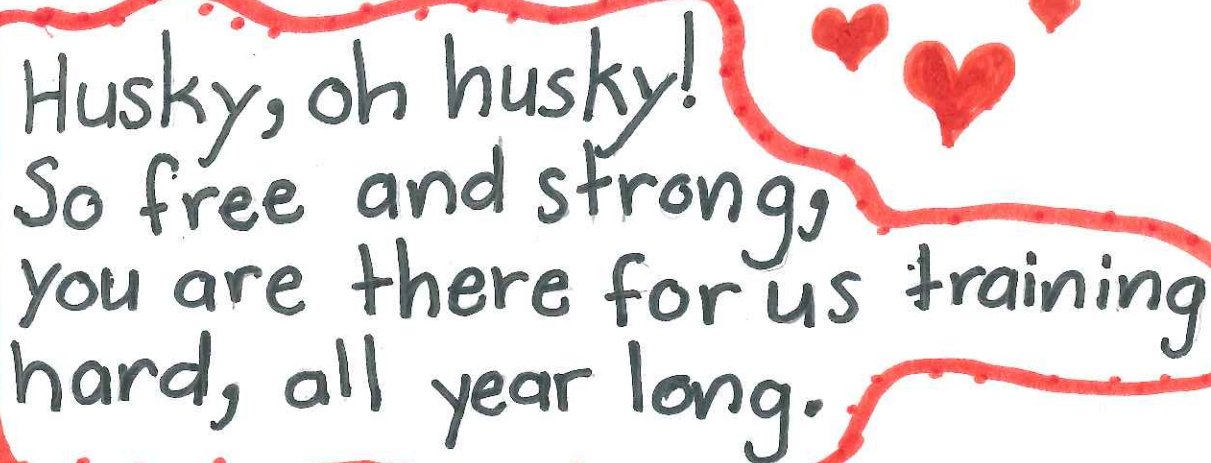 Husky, oh husky!
So free and strong,
you are there for us training
hard, all year long.